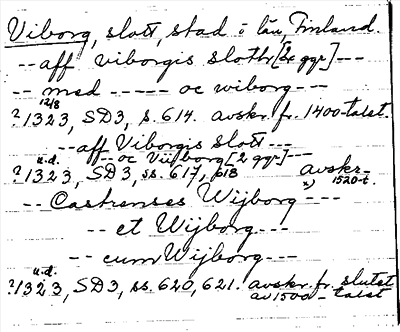 Viborg, slott, stad o län, Finland.
-- aff viborgis sloth [2 ggr] ---
-- med ----- oc wiborg ---
12/8
?1323, SD3, s. 614. avskr. fr. 1400-talet.
-- aff Viborgis slott ---
u.d. -- oc Viiborg [2 ggr] ---
?1323, SD3, ss. 617, 618 avskr.
x) 1520-t.
-- Castrenses Wijborg ---
-- et Wijborg ---
-- cum Wijborg ---
u.d.
?1323, SD3, ss. 620, 621. avskr. fr. slutet
av 1500-talet